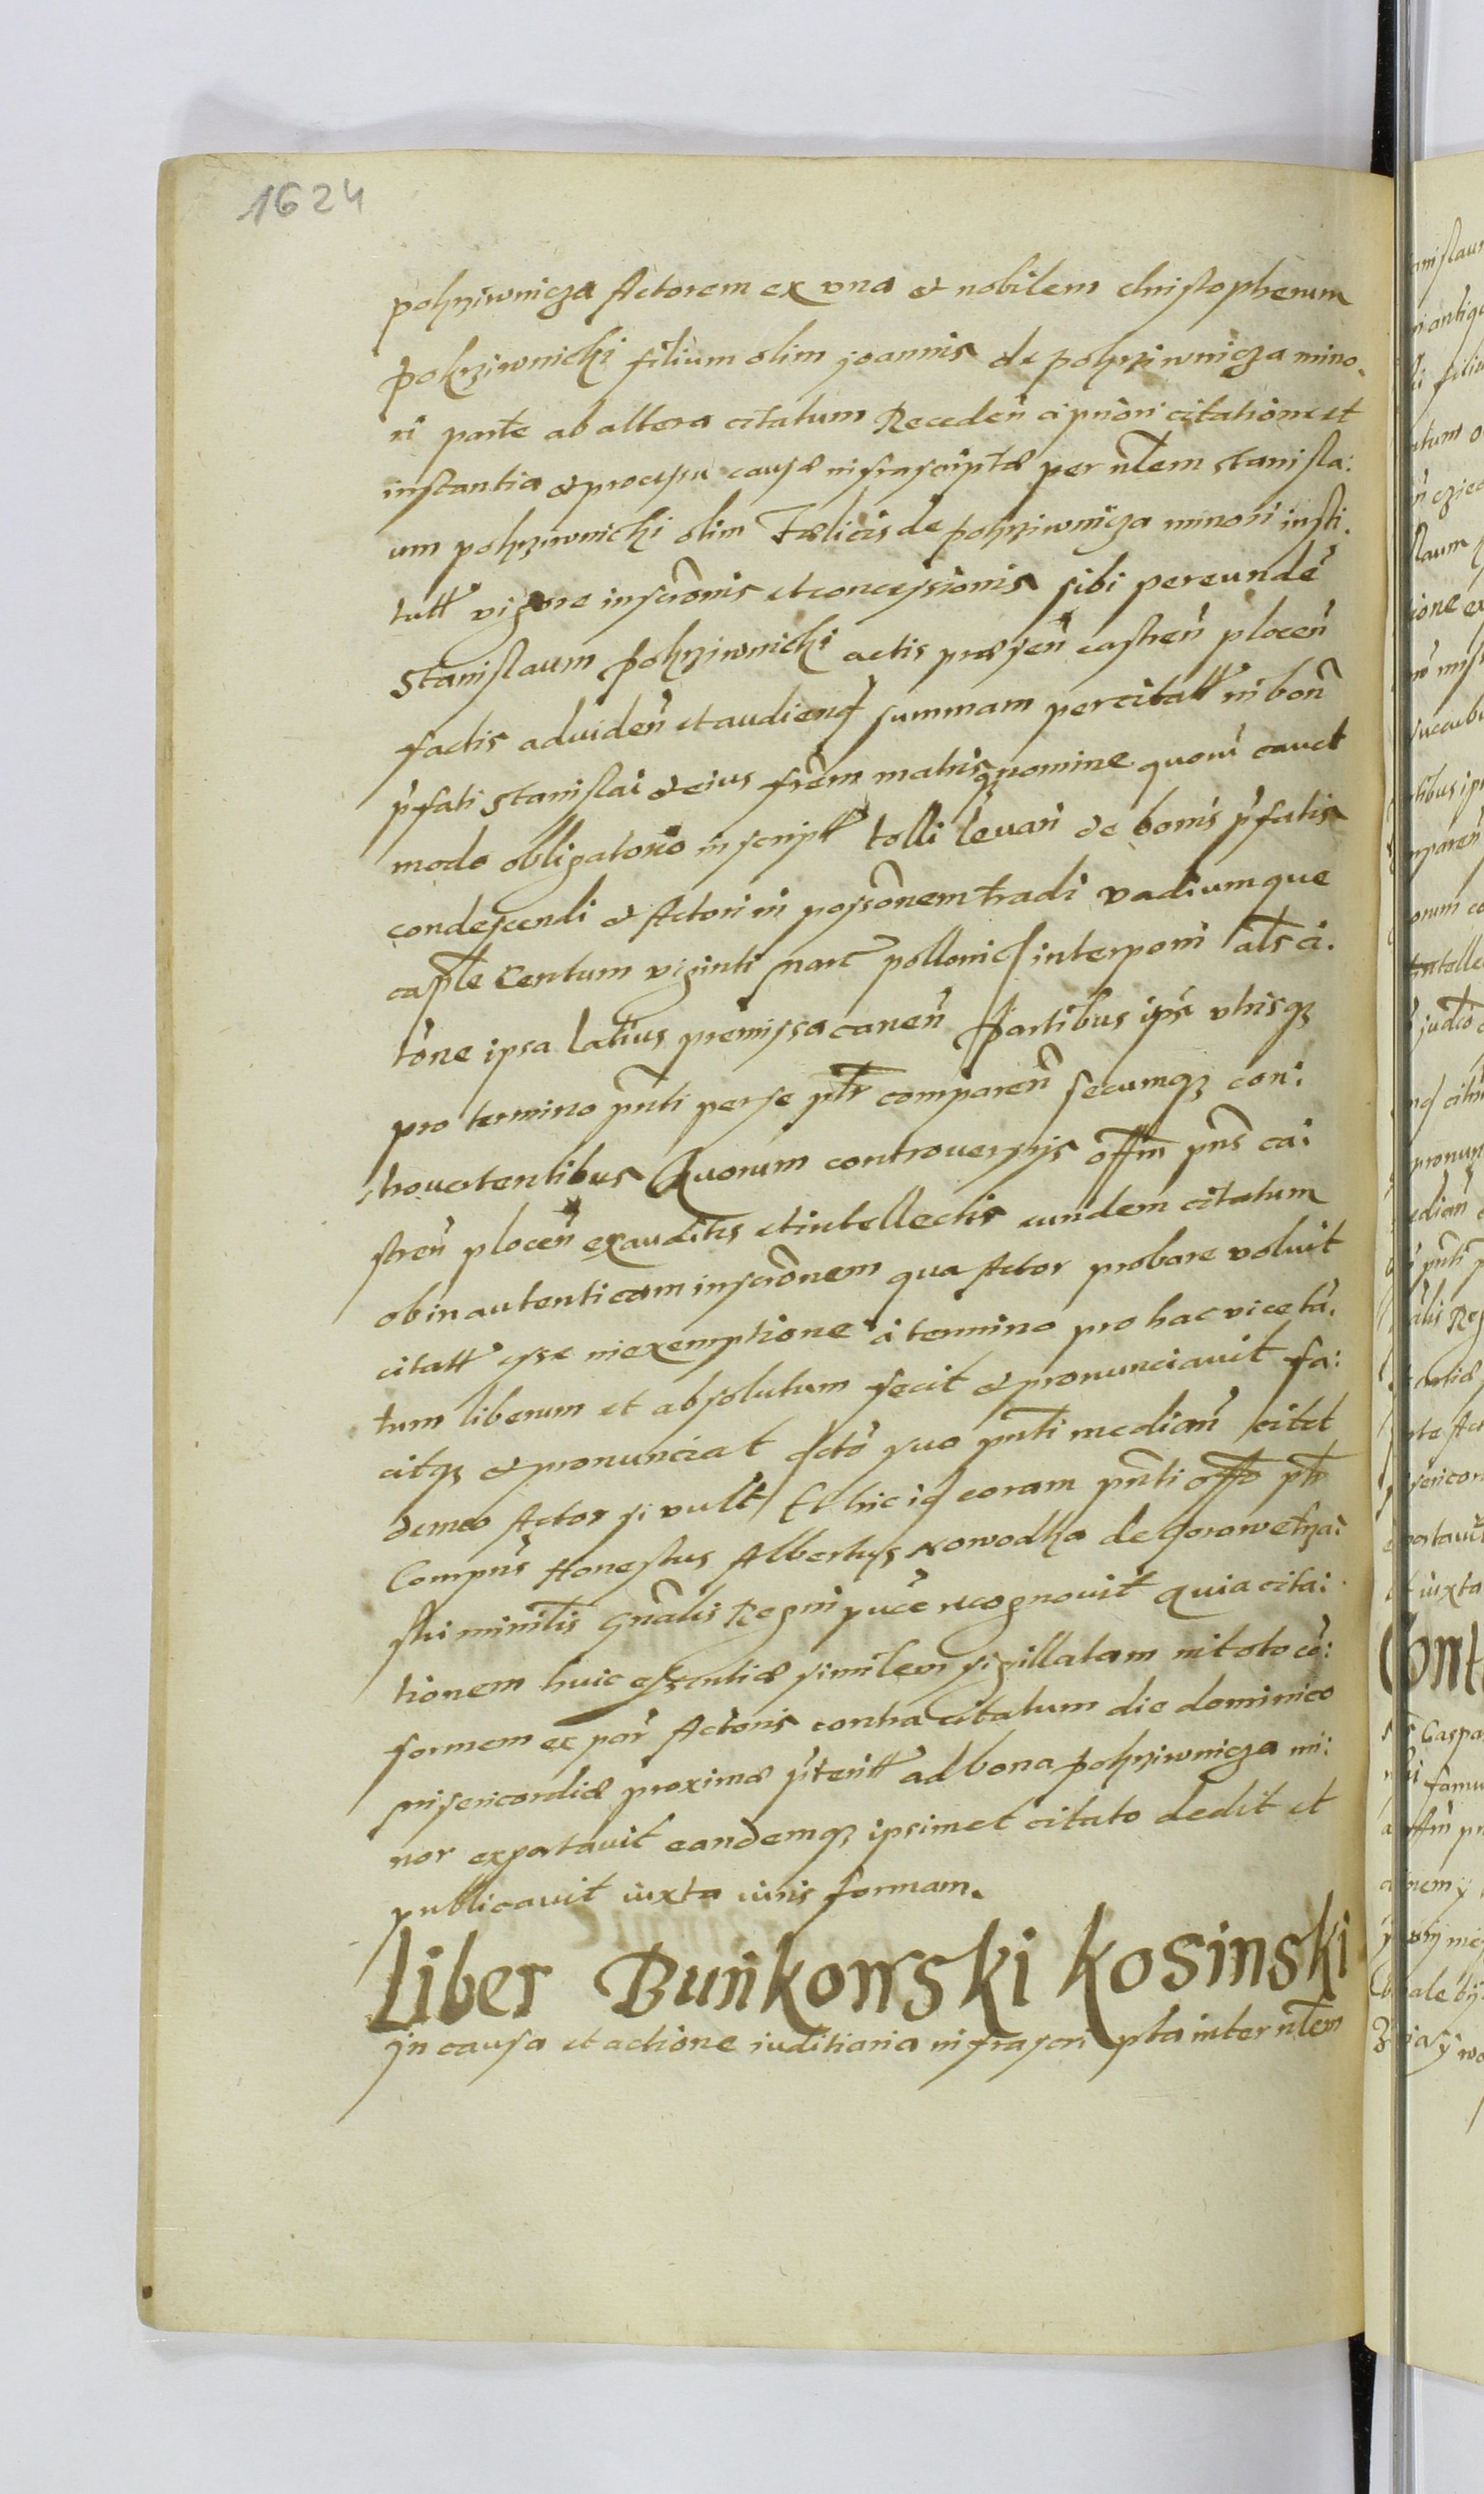 1624
pokrziwnicza Actorem ex vna et nobilem christopherum
pokrziwnichi filium olim joannis de pokrziwnicza mino.
ri parte ab altera citatum Receden̄ a priori citatione et
instantia et processu causæ infrascriptæ per nłem stanisla:
um pokrziwnichi olim Fælicis de pokrziwnicza minori insti.
tutt vigore inscrōnis et concessionis sibi per eundē
Stanislaum pokrziwnichi actis præsen̄ castren̄ plocen̄
factis ad viden̄ et audiend summam per citatt in bon̄
p̄fati stanislai et eius frēm matrisqʒ nomine quovi cauet
modo obligatorio inscriptt tolli leuari de bonis p̄fatis
condescendi et Actori in possōnem tradi vadiumque
casłe centum viginti marc pollonic interponi ałs ci.
tōne ipsa latius premissa canen̄ Partibus ip̄s vtrisqʒ
pro termino pn̄ti per se płr comparen̄ secumqʒ con:
trouertentibus Quorum controuersijs offm pn̄s ca:
stren̄ plocen̄ exauditis et intellectis eundem citatum
ob in autenticam inscrōnem qua Actor probare voluit
citatt esse in exemptione a termino pro hac vice tā.
tum liberum et absolutum fecit et pronunciauit fa:
citqʒ et pronunciat dctō suo pn̄ti median̄ citet
denuo Actor si vult Et hic id coram pn̄ti offo płr
Compn̄s Honestus Albertus Nowodka de Gorawetza
minisłis Gn̄alis Regni recognouit quia cita:
tionem huic essentiæ similem sigillatam in toto cō:
formem ex par Actoris contra citatum die dominico
misericordiæ proximæ p̄teritt ad bona pokrziwnicza mi:
nor exportauit eandemqʒ ipsimet citato dedit et
publicauit iuxta iuris formam.
Liber Bunkowski Kosinski
Jn causa et actione iuditiaria infrascripta inter nłem